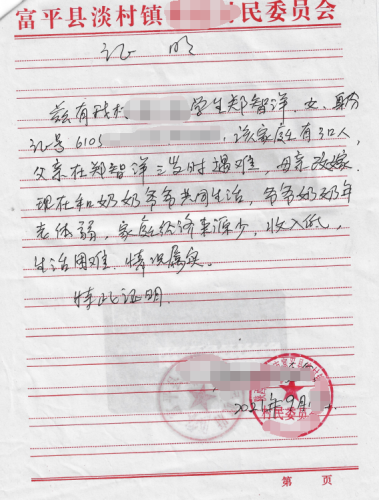 富平县淡村镇 民委员会
证 明
兹有我村 学生郑智洋,女,身份
证号6105 ,该家庭有3口人,
父亲在郑智洋三岁时遇难,母亲改嫁.
现在和奶奶爷爷共同生活,爷爷奶奶年
老体弱,家庭经济来源少,收入低,
生活困难.情况属实。
特此证明.
村民委员
2021年9月1
第 页